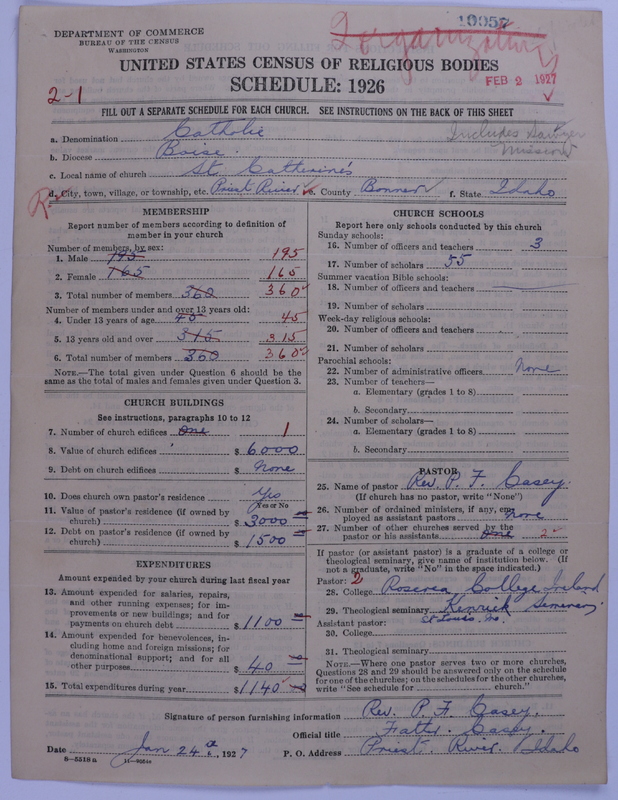 DEPARTMENT OF COMMERCE
BUREAU OF THE CENSUS
WASHINGTON
FEB 2 1927
UNITED STATES CENSUS OF RELIGIOUS BODIES
SCHEDULE: 1926
2-1
FILL OUT A SEPARATE SCHEDULE FOR EACH CHURCH. SEE INSTRUCTIONS ON THE BACK OF THIS SHEET
Includes Sawyer Mission
a. Denomination Catholic
b. Diocese Boise.
c. Local name of church St. Catherine's
d. City, town, village, or township, etc. Priest River e. County Bonner f. State Idaho
MEMBERSHIP
Report number of members according to definition of member in your church
Number of members, by sex:
1. Male 195 195
2. Female 165 165
3. Total number of members 360 360
Number of members under and over 13 years old:
4. Under 13 years of age 45 45
5. 13 years old and over 315 315
6. Total number of members 360 360
NOTE.—The total given under Question 6 should be
same as the total of males and females given under Question 3.
CHURCH BUILDINGS
See instructions, paragraphs 10 to 12
7. Number of church edifices One 1
8. Value of church edifices $ 6000
9. Debt on church edifices $ None
10. Does church own pastor's residence Yes
Yes or No
11. Value of pastor's residence (if owned by
church) $ 3000
12. Debt on pastor's residence (if owned by
church) $ 1500
EXPENDITURES
Amount expended by your church during last fiscal year
13. Amount expended for salaries, repairs,
and other running expenses; for im-
provements or new buildings; and for
payments on church debt $ 1100
14. Amount expended for benevolences, in-
cluding home and foreign missions; for
denominational support; and for all
other purposes $ 40
15. Total expenditures during year $ 1140
CHURCH SCHOOLS
Report here only schools conducted by this church
Sunday schools:
16. Number of officers and teachers 3
17. Number of scholars 55
Summer vacation Bible schools:
18. Number of officers and teachers
19. Number of scholars
Week-day religious schools:
20. Number of officers and teachers
21. Number of scholars
Parochial schools:
22. Number of administrative officers None
23. Number of teachers—
a. Elementary (grades 1 to 8)
b. Secondary
24. Number of scholars—
a. Elementary (grades 1 to 8)
b. Secondary
PASTOR
25. Name of pastor Rev. P. F. Casey.
(If church has no pastor, write "None")
26. Number of ordained ministers, if any, em-
ployed as assistant pastors None
27. Number of other churches served by the
pastor or his assistants One 2
If pastor (or assistant pastor) is a graduate of a college or
theological seminary, give name of institution below. (If
not a graduate, write "No" in the space indicated.)
Pastor: 2
28. College Roscrea College Ireland
29. Theological seminary Kenrick Seminary
Assistant pastor: St Louis. Mo.
30. College
31. Theological seminary
NOTE.—Where one pastor serves two or more churches,
Questions 28 and 29 should be answered only on the schedule
for one of the churches; on the schedules for the other churches,
write "See schedule for church."
Signature of person furnishing information Rev. P. F. Casey.
Official title Father Casey.
Date Jan 24, 1927 P. O. Address Priest River, Idaho
8—5518 a